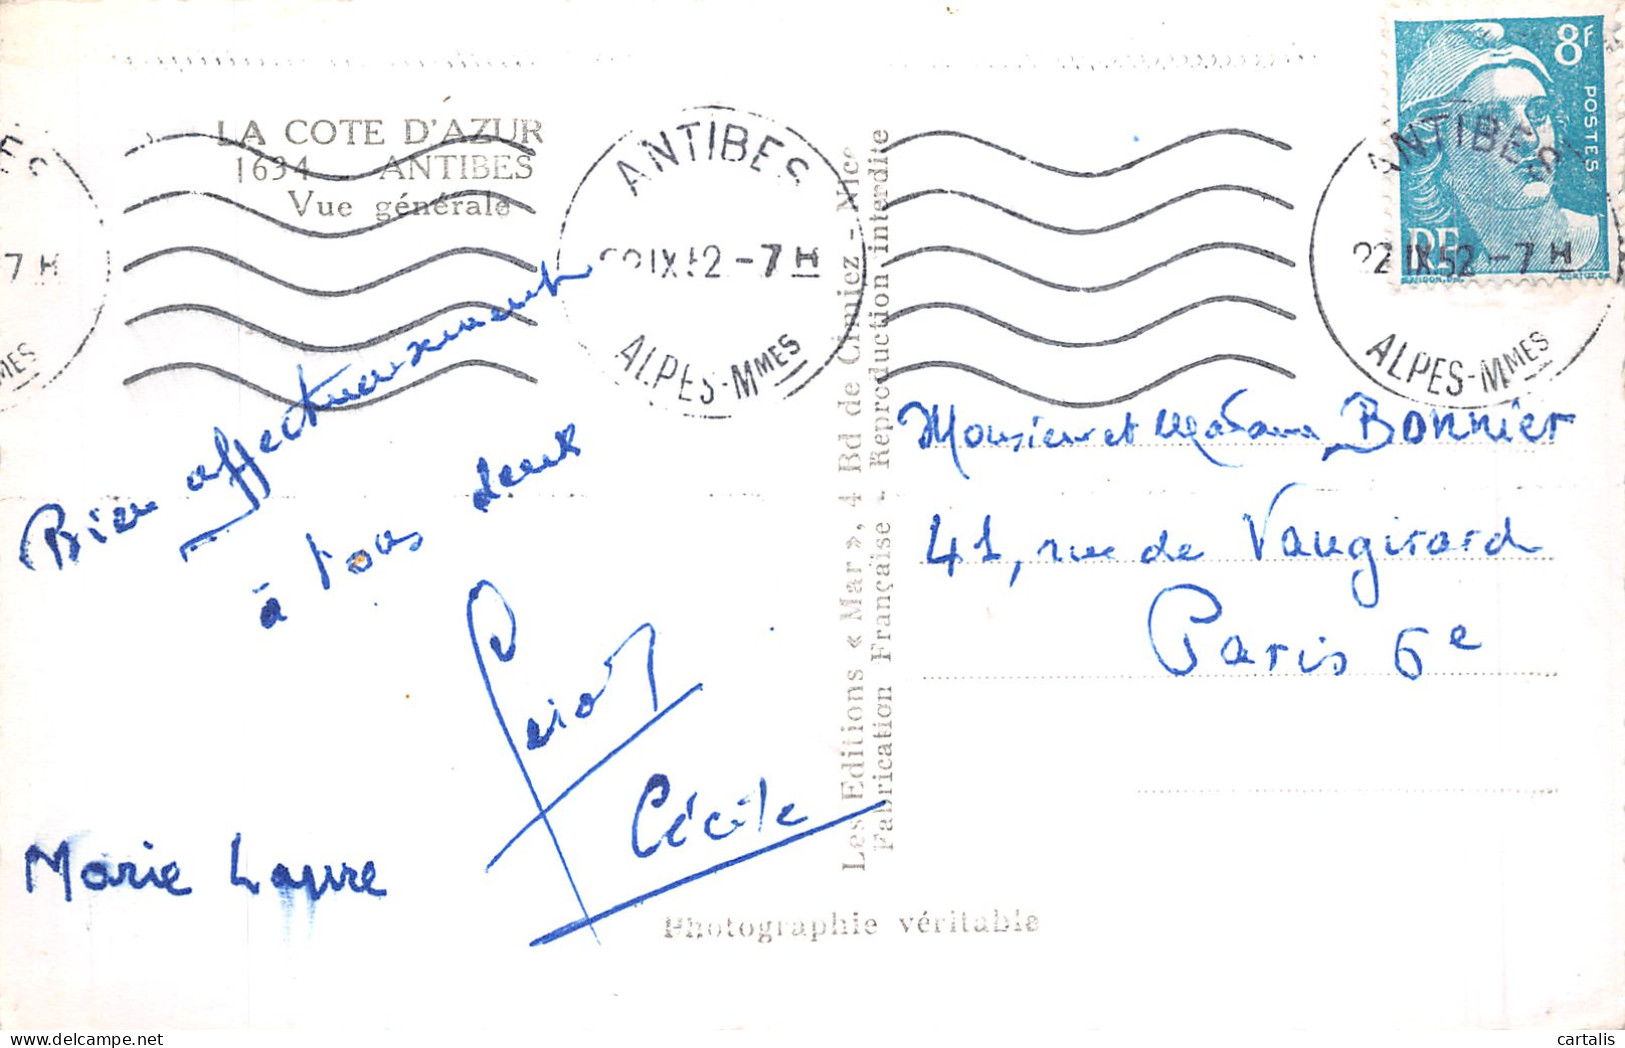 LA COTE D'AZUR
1634 ANTIBES
Vue générale
Bien affectueusement
à tous deux
Cécile
Marie Laure
Photographie véritable
Les Editions « Mar », 4 Bd de Cimiez - Nice
Fabrication Française - Reproduction interdite
ANTIBES
IX 52 - 7 H
ALPES-MMES
8F
POSTES
RF
ANTIBES
22 IX 52 - 7 H
ALPES-MMES
7 H
MES
Monsieur et Madame Bonnier
41, rue de Vaugirard
Paris 6e
cartalis